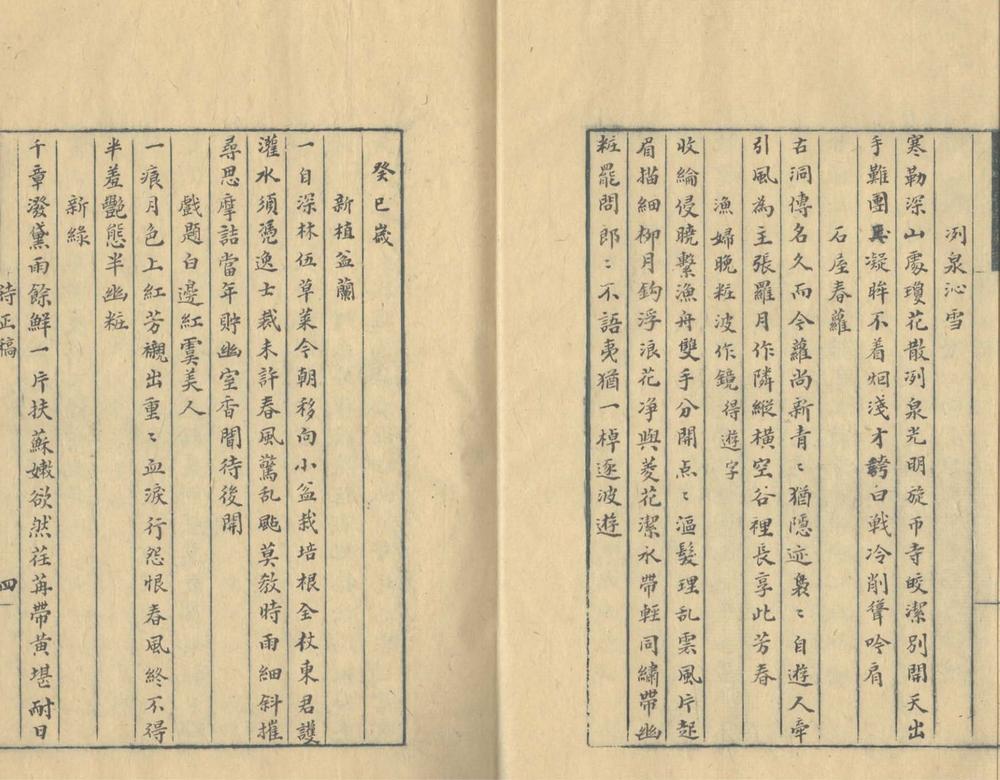 冽泉沁雪
寒勒深山處瓊花散冽泉光明旋帀寺皎潔別開天出
手難團凝眸不着烟淺才誇白戰冷削聳吟肩
石屋春蘿
古洞傳名久而今蘿尚新青〻猶隱迹裊〻自遊人牽
引風為主張羅月作隣縱橫空谷裡長享此芳春
漁婦晚粧波作鏡得遊字
收綸侵曉繫漁舟雙手分開点〻漚髮理乱雲風片起
眉描細柳月鈎浮浪花净與菱花潔水帶輕同繡帶幽
粧罷問郎〻不語夷猶一棹逐波遊
癸巳歲
新植盆蘭
一自深林伍草萊今朝移向小盆栽培根全杖東君護
灌水須凴逸士裁未許春風驚乱颭莫教時雨細斜摧
尋思摩詰當年貯幽室香聞待後開
戲題白邊紅虞美人
一痕月色上紅芳襯出重〻血淚行怨恨春風終不得
半羞艷態半幽粧
新綠
千章潑黛雨餘鮮一片扶蘇嫩欲然荏苒帶黄堪耐日
四